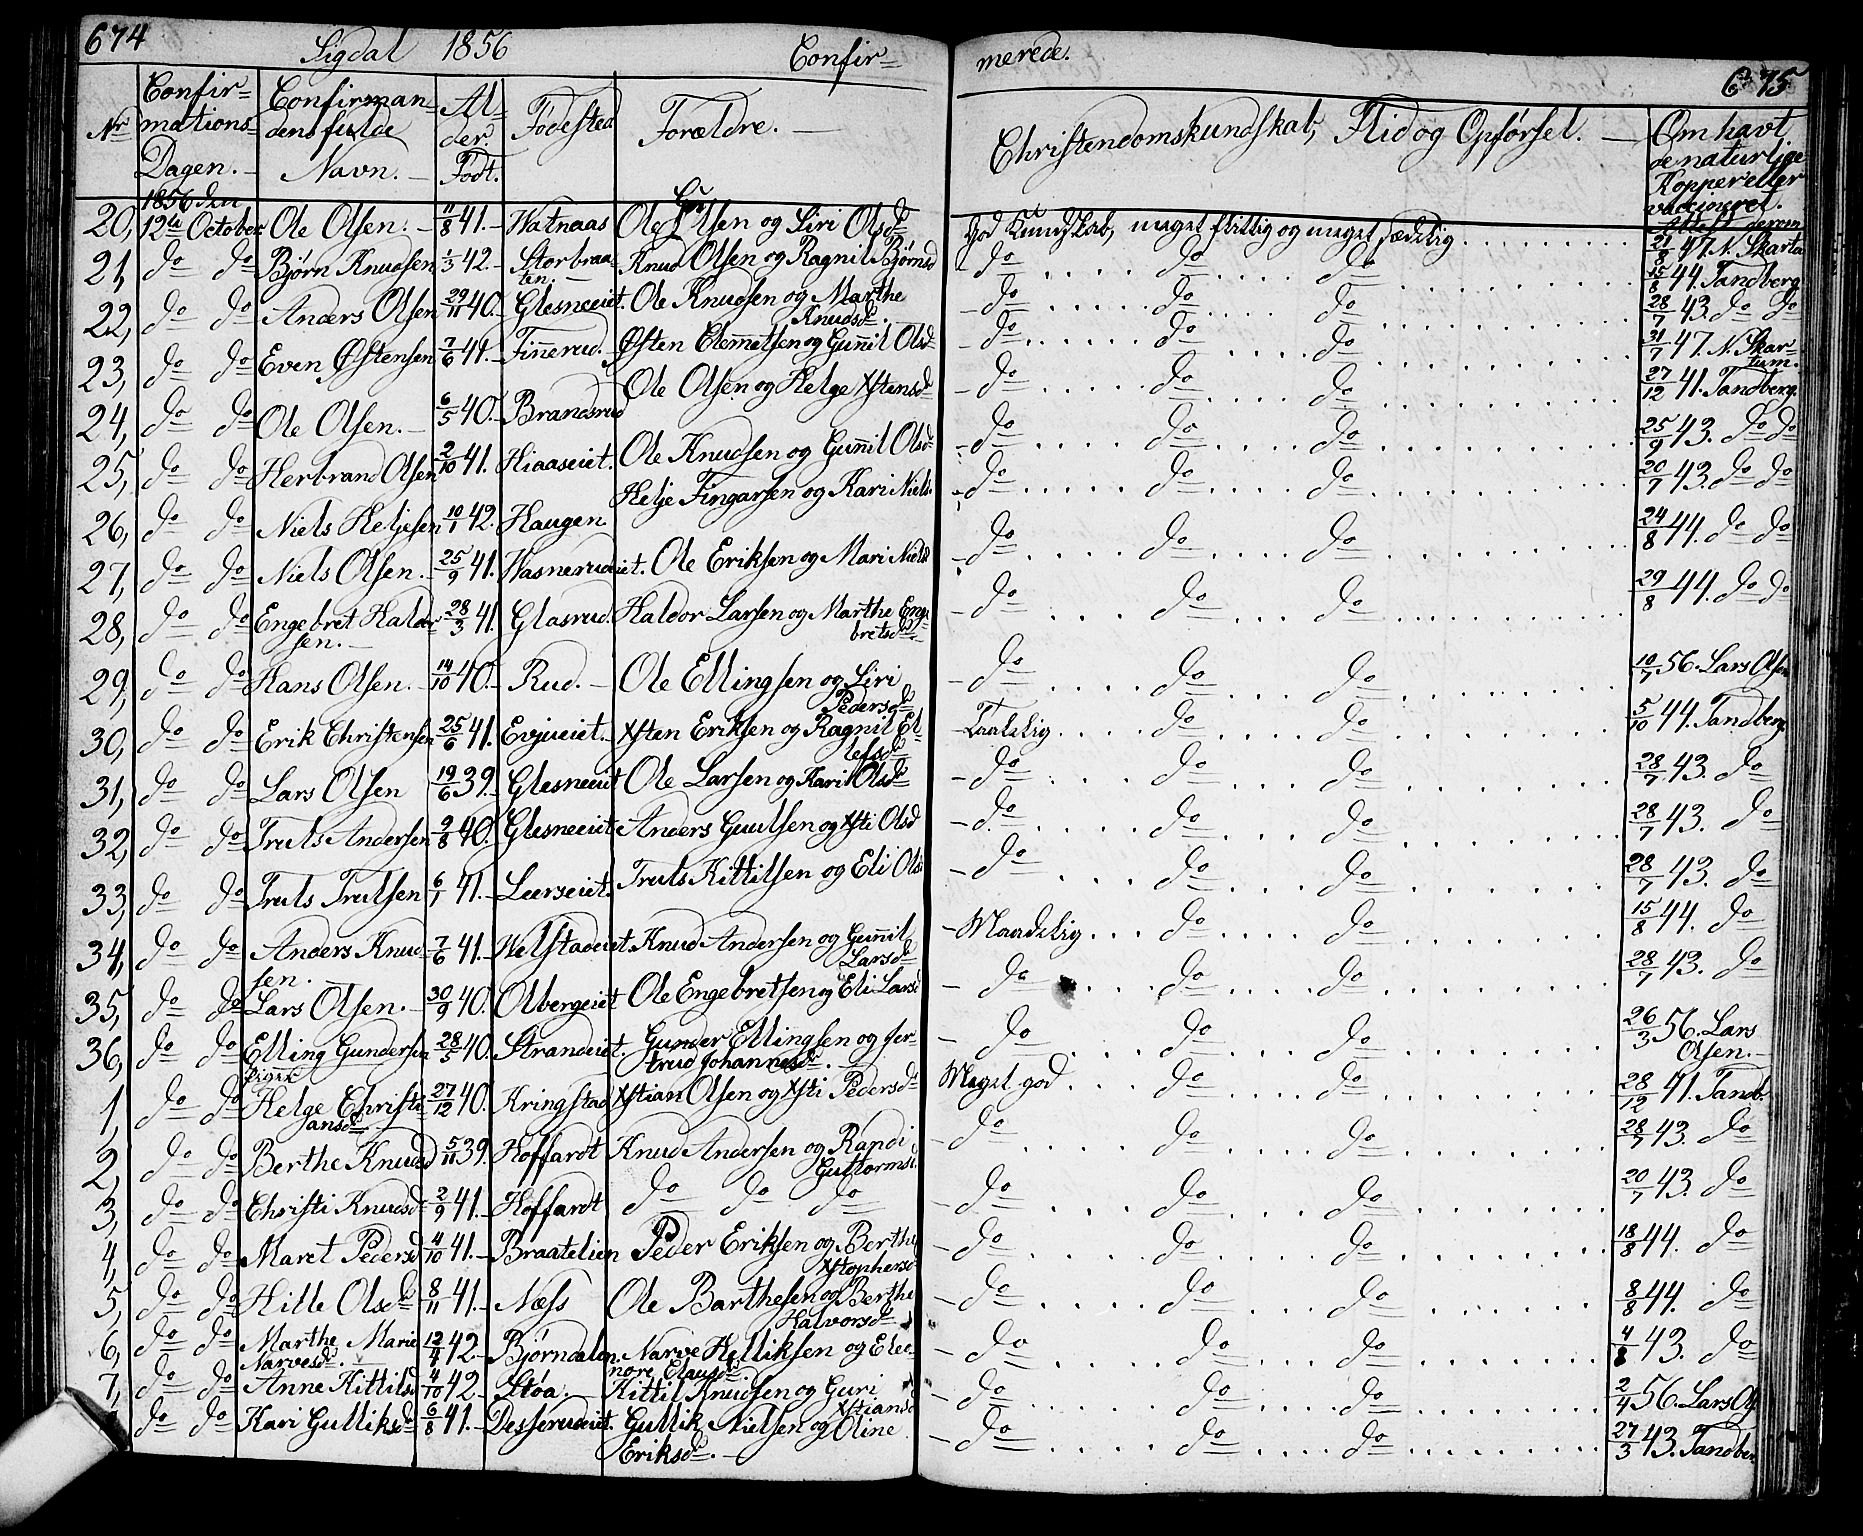 674 Sigdal 1856 Confir= merede. 675
Nr Confir=mations=Dagen. Confirman=dens fulde Navn. Al=der. Født. Fødested Forældre. Christendomskundskab, Flid og Opførsel. Om havt de naturlige Kopper eller vaccineret. Attest derom
1856 den
20, 12te October Ole Olsen. 11/8 41. Watnaas Ole Olsen og Siri Olsd. God Kundskab, meget flittig og meget sædelig 21/8 47. N. Skartu
21, do do Bjørn Knudsen 1/3 42. Storbraaten. Knud Olsen og Ragnil Bjørnsd do do do 15/8 44. Tandberg
22, do do Anders Olsen 29/11 40. Glesneeiet. Ole Knudsen og Marthe Knudsd. do do do 28/7 43. do do
23, do do Even Østensen 7/6 41. Finnerud. Østen Clemmetsen og Gunnil Olsd do do do 31/7 47. N. Skartum.
24, do do Ole Olsen. 6/5 40. Brandsrud Ole Olsen og Helge Xstensd do do do 27/12 41. Tandberg.
25, do do Herbrand Olsen 2/10 41. Hiaaseiet. Ole Knudsen og Gunnil Olsd do do do 25/9 43. do do
26, do do Niels Heljesen 10/1 42. Haugen Helje Fingarsen og Kari Niels. do do do 20/7 43. do do
27, do do Niels Olsen. 25/9 41. Hasnerudeiet. Ole Eriksen og Mari Nielsd do do do 24/8 44. do do
28, do do Engebret Haldorsen. 28/3 41. Glasrud. Haldor Larsen og Marthe Engebretsd. do do do 29/8 44. do do
29, do do Hans Olsen. 14/10 40. Rud. Ole Ellingsen og Siri Pedersd do do do 10/7 56. Lars Olsen
30, do do Erik Christensen 25/6 41. Evjueiet. Xsten Eriksen og Ragnil Ellefsd Taalelig do do 5/10 44. Tandberg
31, do do Lars Olsen 19/6 39. Glesneeiet Ole Larsen og Kari Olsd do do do 28/7 43. do
32, do do Truls Andersen 2/8 40. Glesneeiet Anders Guulsen og Xsti Olsd do do do 28/7 43. do
33, do do Truls Trulsen 6/1 41. Leerseiet. Truls Kittilsen og Eli Ols. do do do 28/7 43. do
34, do do Anders Knudsen. 7/6 41. Helstadeiet. Knud Andersen og Gunnil Larsd Maadelig do do 15/8 44. do
35, do do Lars Olsen. 30/9 40. Olbergeiet Ole Engebretsen og Eli Larsd do do do 28/7 43. do
36, do do Elling Gundersen 28/5 40. Strandeiet. Gunder Ellingsen og Jertrud Johannesd. do do do 26/3 56. Lars Olsen.
Piger
1, do do Helge Christiansd 27/12 40. Kringstad Xstian Olsen og Xsti Pedersd Meget god do do 28/12 41. Tandb.
2, do do Berthe Knudsd 5/11 39. Hoffardt Knud Andersen og Randi Guttormsd. do do do 28/7 43. do
3, do do Christi Knudsd 2/9 41. Hoffardt do do do do do do 20/7 43. do
4, do do Maret Pedersd 4/10 41. Braatelien Peder Eriksen og Berthe Xstophersd do do do 18/8 44. do
5, do do Hille Olsd 8/11 41. Næss Ole Barthesen og Berthe Halvorsd do do do 8/8 44. do
6, do do Marthe Marie Narvesd. 12/4 42. Bjørndalen. Narve Helliksen og Eleonore Clausd. do do do 4/8 43. do
7, do do Anne Kittilsd 4/10 42. Støa. Kittil Knudsen og Guri Xstiansd do do do 2/4 56. Lars Ols
do do Kari Gulliksd 6/8 41. Desserudeiet. Gullik Nielsen og Oline Eriksd. do do do 27/3 43. Tandber